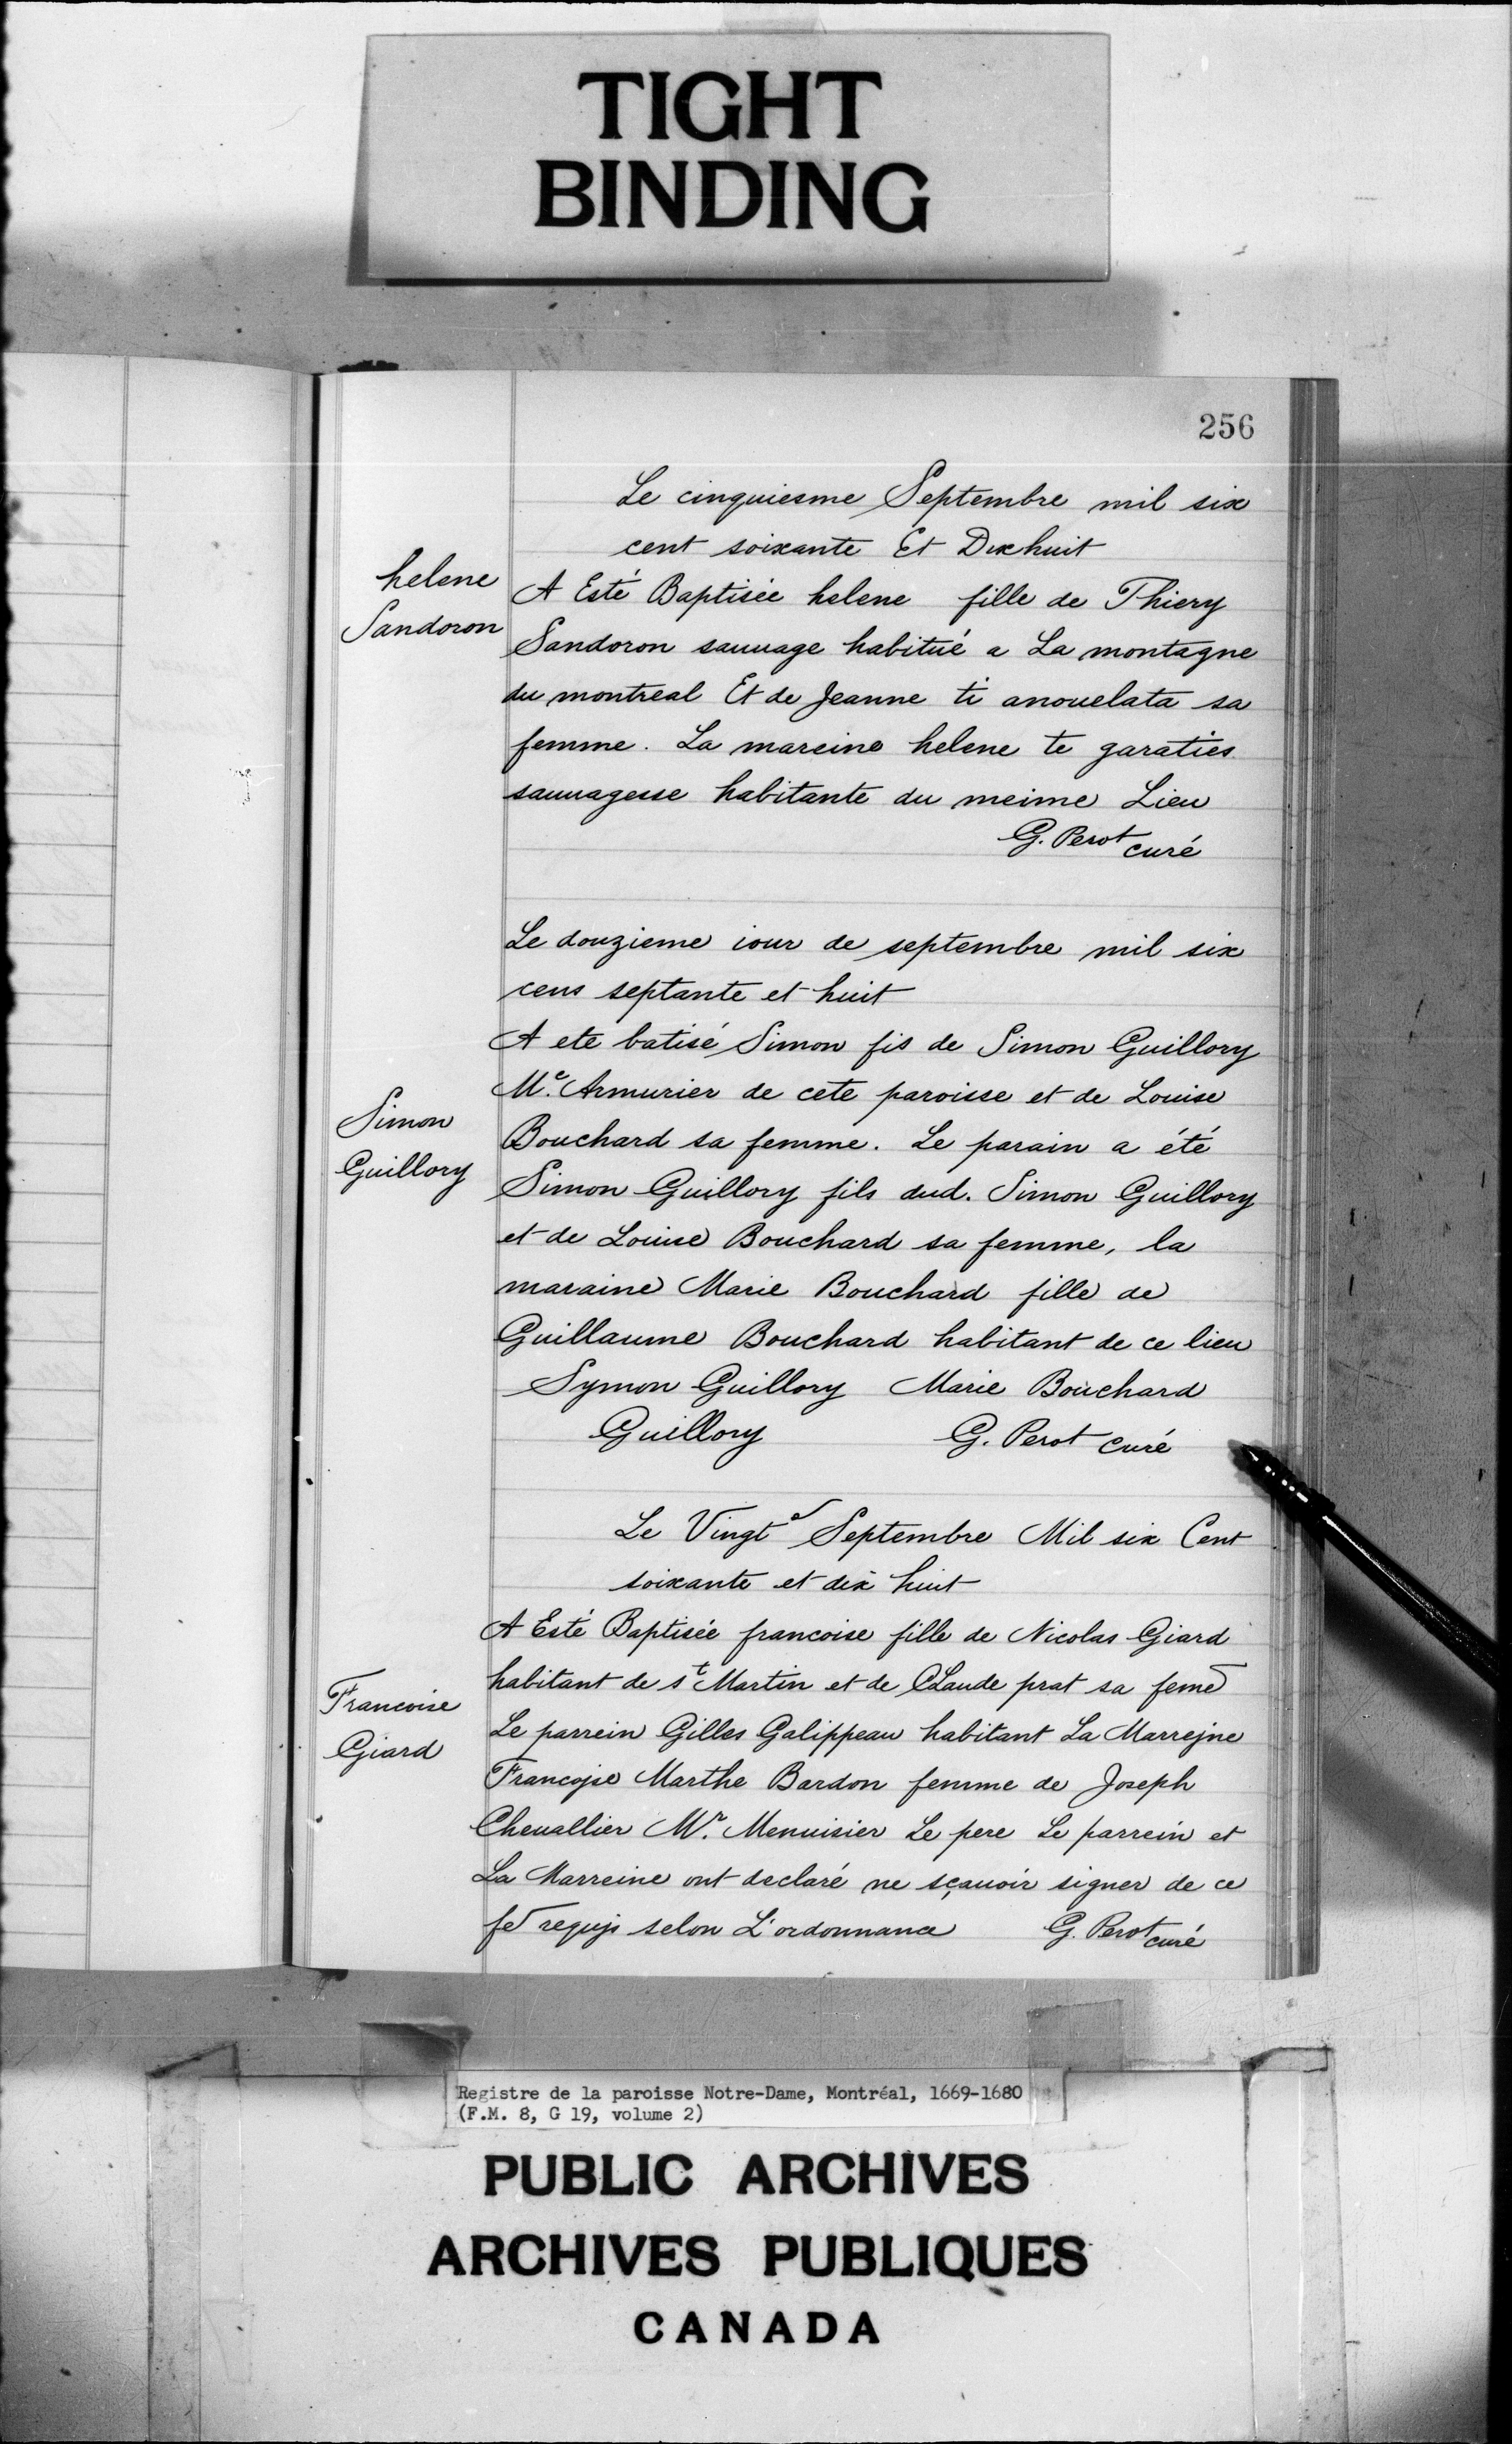 TIGHT
BINDING
256
Le cinquiesme Septembre mil six
cent soixante Et Dixhuit
helene
Sandoron
A Esté Baptisée helene fille de Thiery
Sandoron sauuage habitué a La montagne
du montreal Et de Jeanne ti anouelata sa
femme. La mareine helene te garaties
sauuagesse habitante du meime Lieu
G. Perot curé
Le douzieme iour de septembre mil six
cens septante et huit
Simon
Guillory
A ete batisé Simon fis de Simon Guillory
Me. Armurier de cete paroisse et de Louise
Bouchard sa femme. Le parain a été
Simon Guillory fils dud. Simon Guillory
et de Louise Bouchard sa femme, la
maraine Marie Bouchard fille de
Guillaume Bouchard habitant de ce lieu
Symon Guillory Marie Bouchard
Guillory G. Perot curé
Le Vingt Septembre Mil six Cent
soixante et dix huit
Francoise
Giard
A Esté Baptisée francoise fille de Nicolas Giard
habitant de st Martin et de CLaude prat sa feme
Le parrein Gilles Galippeau habitant La Marrejne
Francojse Marthe Bardon femme de Joseph
Cheuallier Mr. Menuisier Le pere Le parrein et
La Marreine ont declaré ne sçauoir signer de ce
fe requjs selon L'ordonnance G. Perot curé
Registre de la paroisse Notre-Dame, Montréal, 1669-1680
(F.M. 8, G 19, volume 2)
PUBLIC ARCHIVES
ARCHIVES PUBLIQUES
CANADA